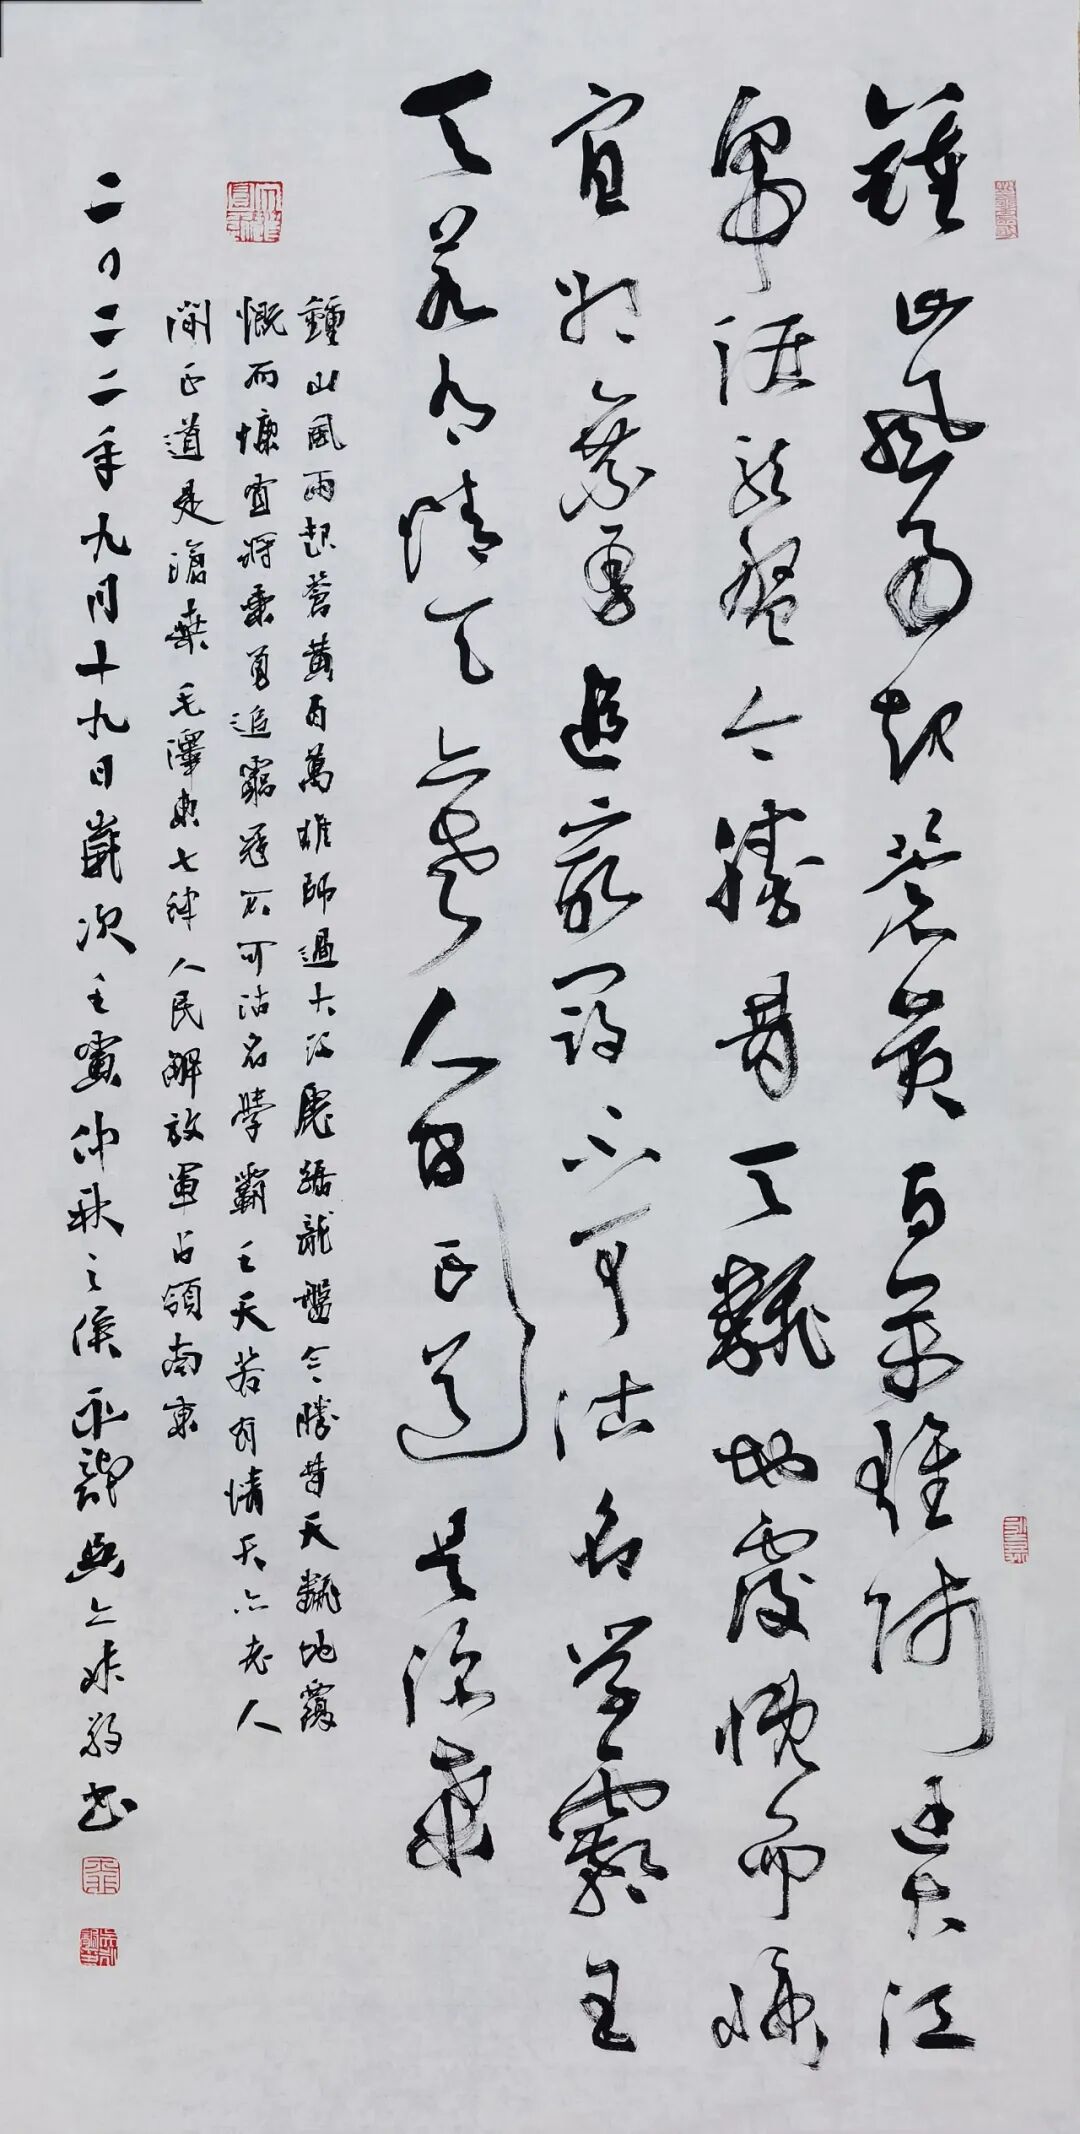 鍾山風雨起蒼黄百萬雄師過大江
虎踞龍盤今勝昔天飜地覆慨而慷
宜將剩勇追窮寇不可沽名學霸王
天若有情天亦老人間正道是滄桑
鍾山風雨起蒼黄百萬雄師過大江虎踞龍盤今勝昔天飜地覆
慨而慷宜將剩勇追窮寇不可沽名學霸王天若有情天亦老人
間正道是滄桑毛澤東七律人民解放軍占領南京
二〇二二年九月十九日歲次壬寅仲秋之候敬书